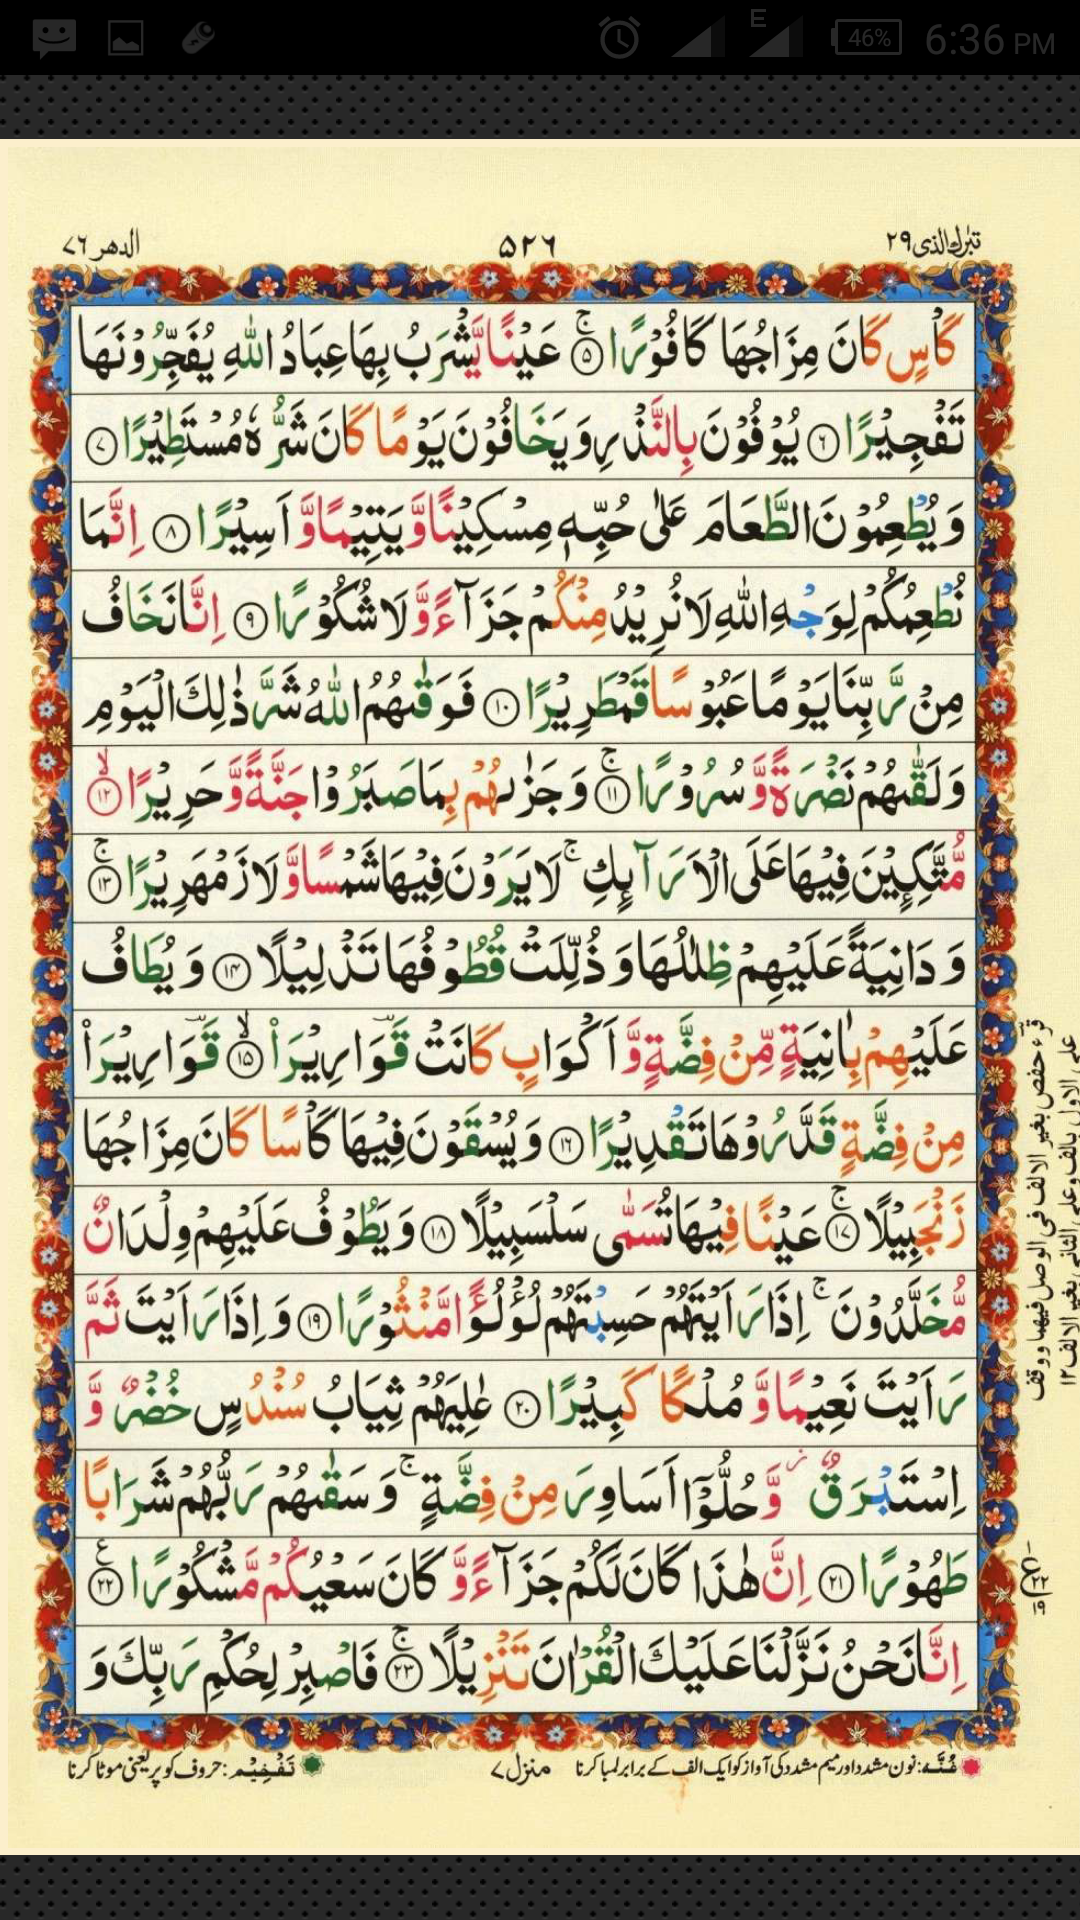 46% 6:36 PM
E
تبٰرك الذی ۲۹
۵۲۶
الدهر ۷۶
كَاْسٍ كَانَ مِزَاجُهَا كَافُوْرًا ۚ ۵ عَيْنًا يَّشْرَبُ بِهَا عِبَادُ اللّٰهِ يُفَجِّرُوْنَهَا
تَفْجِيْرًا ۶ يُوْفُوْنَ بِالنَّذْرِ وَيَخَافُوْنَ يَوْمًا كَانَ شَرُّهٗ مُسْتَطِيْرًا ۷
وَيُطْعِمُوْنَ الطَّعَامَ عَلٰى حُبِّهٖ مِسْكِيْنًا وَّيَتِيْمًا وَّاَسِيْرًا ۸ اِنَّمَا
نُطْعِمُكُمْ لِوَجْهِ اللّٰهِ لَا نُرِيْدُ مِنْكُمْ جَزَآءً وَّلَا شُكُوْرًا ۹ اِنَّا نَخَافُ
مِنْ رَّبِّنَا يَوْمًا عَبُوْسًا قَمْطَرِيْرًا ۱۰ فَوَقٰىهُمُ اللّٰهُ شَرَّ ذٰلِكَ الْيَوْمِ
وَلَقّٰىهُمْ نَضْرَةً وَّسُرُوْرًا ۚ ۱۱ وَجَزٰىهُمْ بِمَا صَبَرُوْا جَنَّةً وَّحَرِيْرًا ۙ ۱۲
مُّتَّكِـِٕيْنَ فِيْهَا عَلَى الْاَرَآىِٕكِ ۚ لَا يَرَوْنَ فِيْهَا شَمْسًا وَّلَا زَمْهَرِيْرًا ۚ ۱۳
وَدَانِيَةً عَلَيْهِمْ ظِلٰلُهَا وَذُلِّلَتْ قُطُوْفُهَا تَذْلِيْلًا ۱۴ وَيُطَافُ
عَلَيْهِمْ بِاٰنِيَةٍ مِّنْ فِضَّةٍ وَّاَكْوَابٍ كَانَتْ قَوَارِيْرَا۠ ۙ ۱۵ قَوَارِيْرَا۠
مِنْ فِضَّةٍ قَدَّرُوْهَا تَقْدِيْرًا ۱۶ وَيُسْقَوْنَ فِيْهَا كَاْسًا كَانَ مِزَاجُهَا
زَنْجَبِيْلًا ۚ ۱۷ عَيْنًا فِيْهَا تُسَمّٰى سَلْسَبِيْلًا ۱۸ وَيَطُوْفُ عَلَيْهِمْ وِلْدَانٌ
مُّخَلَّدُوْنَ ۚ اِذَا رَاَيْتَهُمْ حَسِبْتَهُمْ لُؤْلُؤًا مَّنْثُوْرًا ۱۹ وَاِذَا رَاَيْتَ ثَمَّ
رَاَيْتَ نَعِيْمًا وَّمُلْكًا كَبِيْرًا ۲۰ عٰلِيَهُمْ ثِيَابُ سُنْدُسٍ خُضْرٌ وَّ
اِسْتَبْرَقٌ ز وَّحُلُّوْٓا اَسَاوِرَ مِنْ فِضَّةٍ ۚ وَسَقٰىهُمْ رَبُّهُمْ شَرَابًا
طَهُوْرًا ۲۱ اِنَّ هٰذَا كَانَ لَكُمْ جَزَآءً وَّكَانَ سَعْيُكُمْ مَّشْكُوْرًا ع ۲۲
اِنَّا نَحْنُ نَزَّلْنَا عَلَيْكَ الْقُرْاٰنَ تَنْزِيْلًا ۚ ۲۳ فَاصْبِرْ لِحُكْمِ رَبِّكَ وَ
قرء حفص بغير الالف فى الوصل فيهما ووقف
على الاول بالف وعلى الثانى بغير الالف ۱۲
ع
غُنّه: نون مشدد اور میم مشدد کی آواز کو ایک الف کے برابر لمبا کرنا
منزل ۷
تَفْخِيْم: حروف کو پر یعنی موٹا کرنا